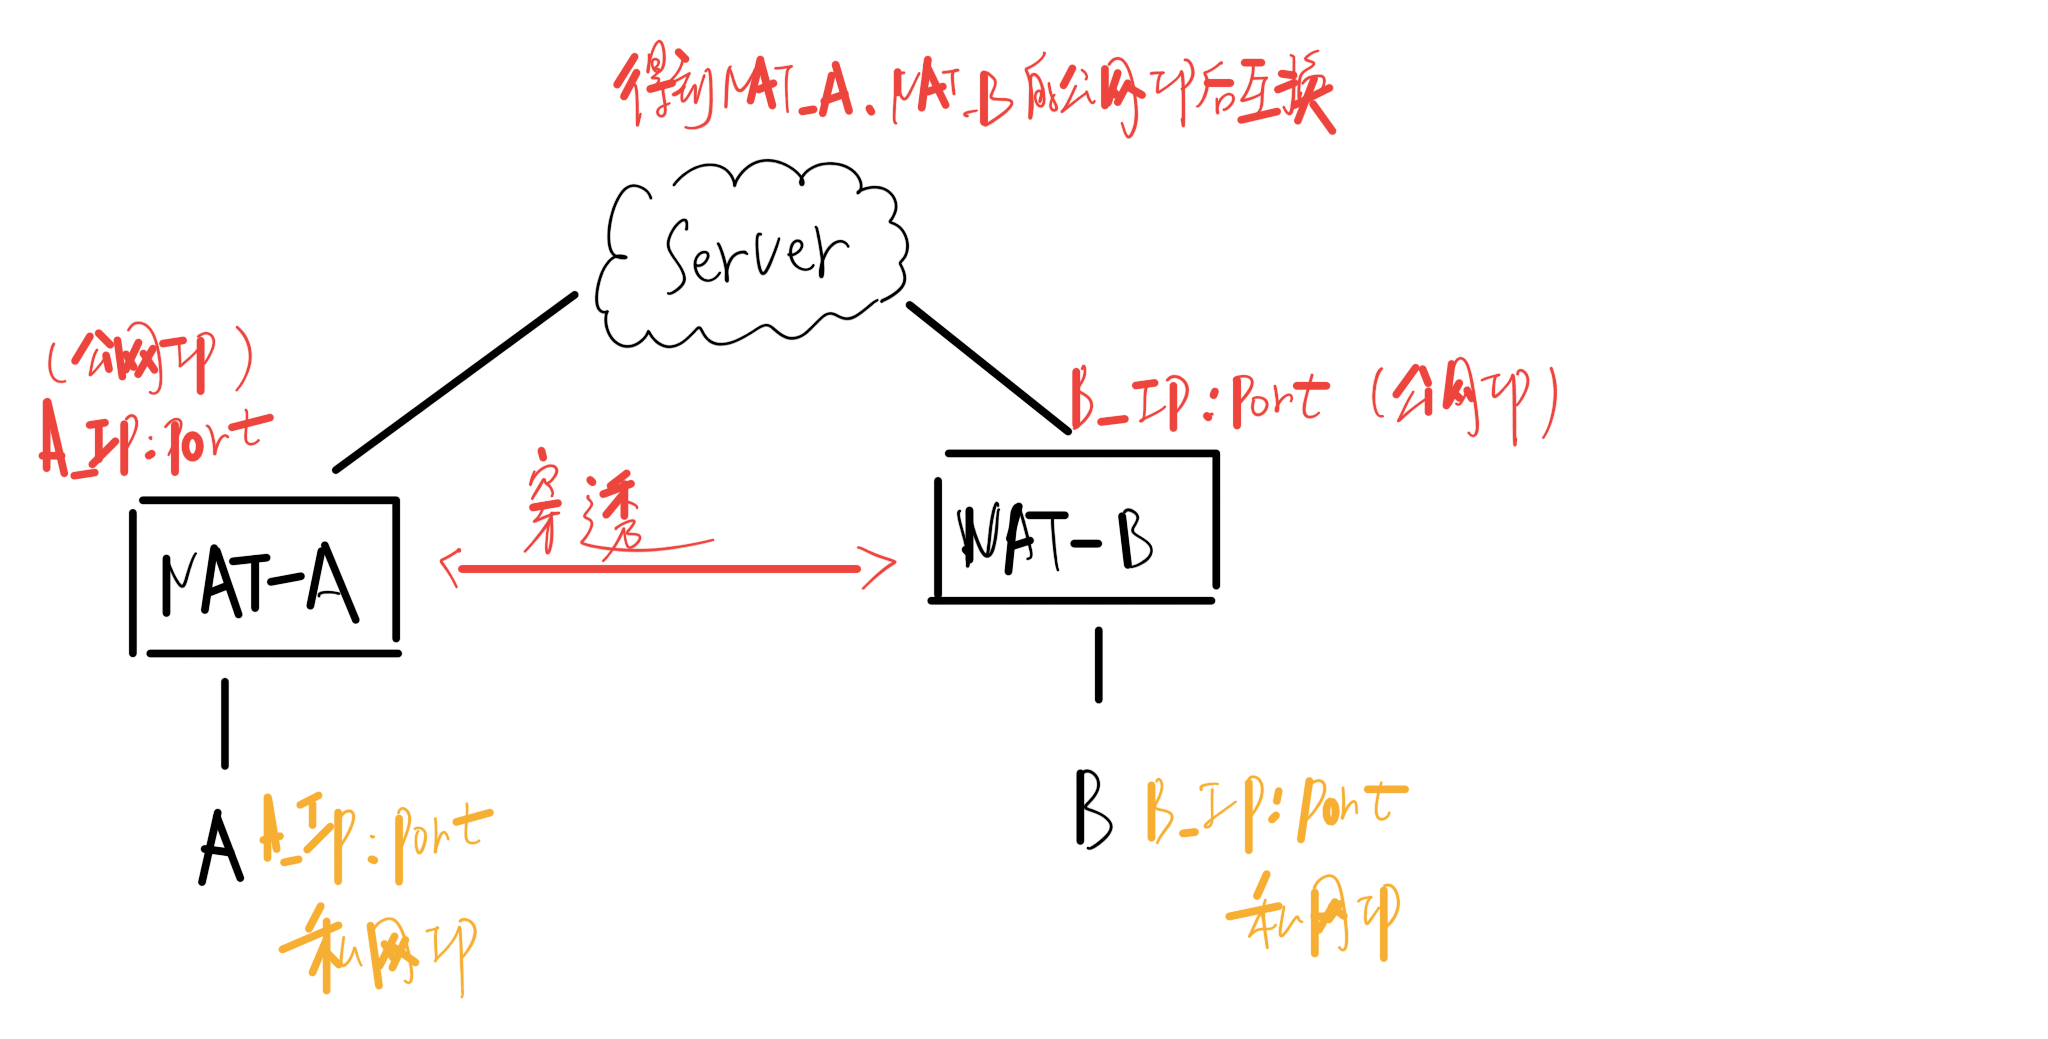 得到NAT_A.NAT_B的公网IP后互换
Server
(公网IP)
A_IP:port
B_IP:port (公网IP)
穿透
NAT-A
NAT-B
A A_IP:port
私网IP
B B_IP:port
私网IP